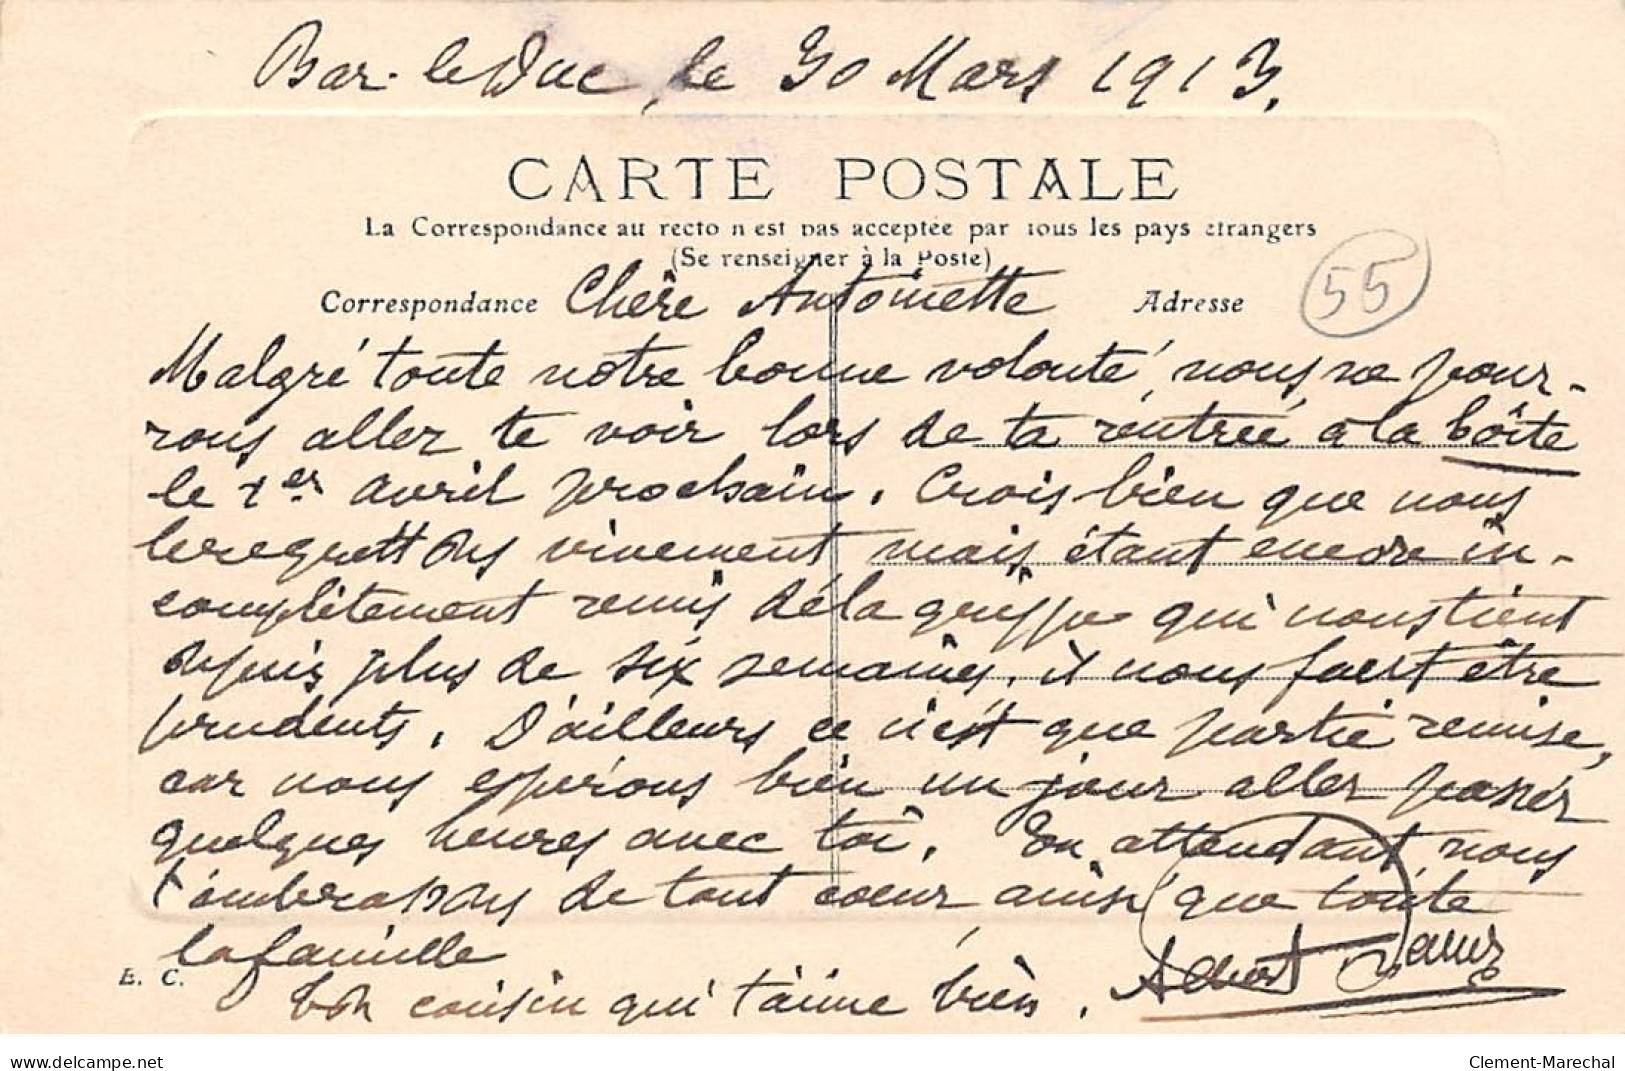 Bar-le-Duc, le 30 Mars 1913.
CARTE POSTALE
La Correspondance au recto n'est pas acceptée par tous les pays étrangers
(Se renseigner à la Poste)
Correspondance Chère Antoinette Adresse
55
Malgré toute notre bonne volonté, nous ne pour-
rons aller te voir lors de ta rentrée à la boîte
le 1er avril prochain. Crois bien que nous
le regrettons vivement mais étant encore in-
complètement remis de la grippe qui nous tient
depuis plus de six semaines, il nous faut être
prudents. D'ailleurs ce n'est que partie remise,
car nous espérons bien un jour aller passer
quelques heures avec toi. En attendant, nous
t'embrassons de tout coeur ainsi que toute
la famille
E. C.
Ton cousin qui t'aime bien. Albert
delcampe.net
Clement-Marechal